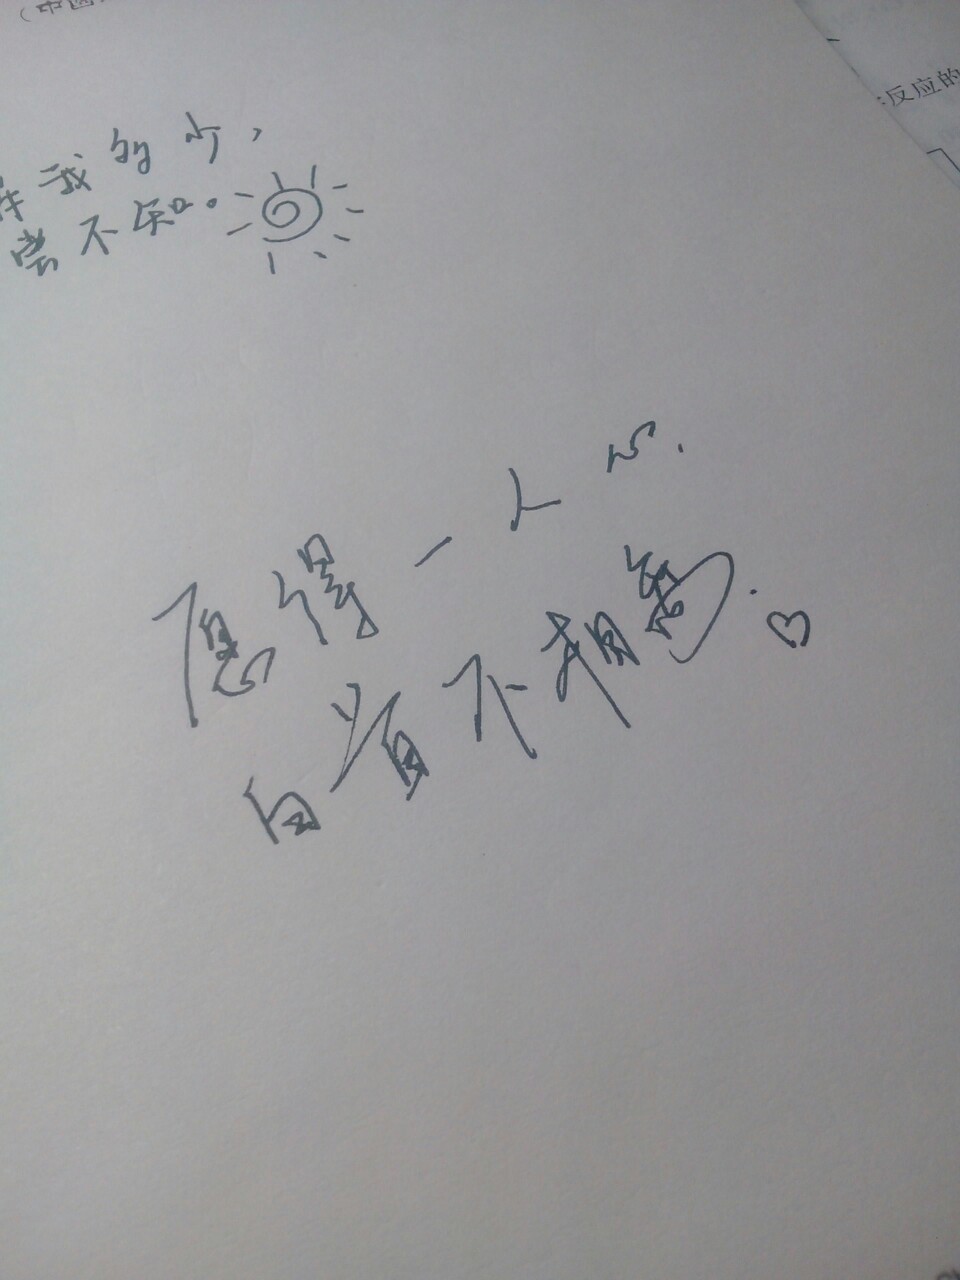 （中国
反应的
我的少，
尝不知。
愿得一人心.
白首不相离.